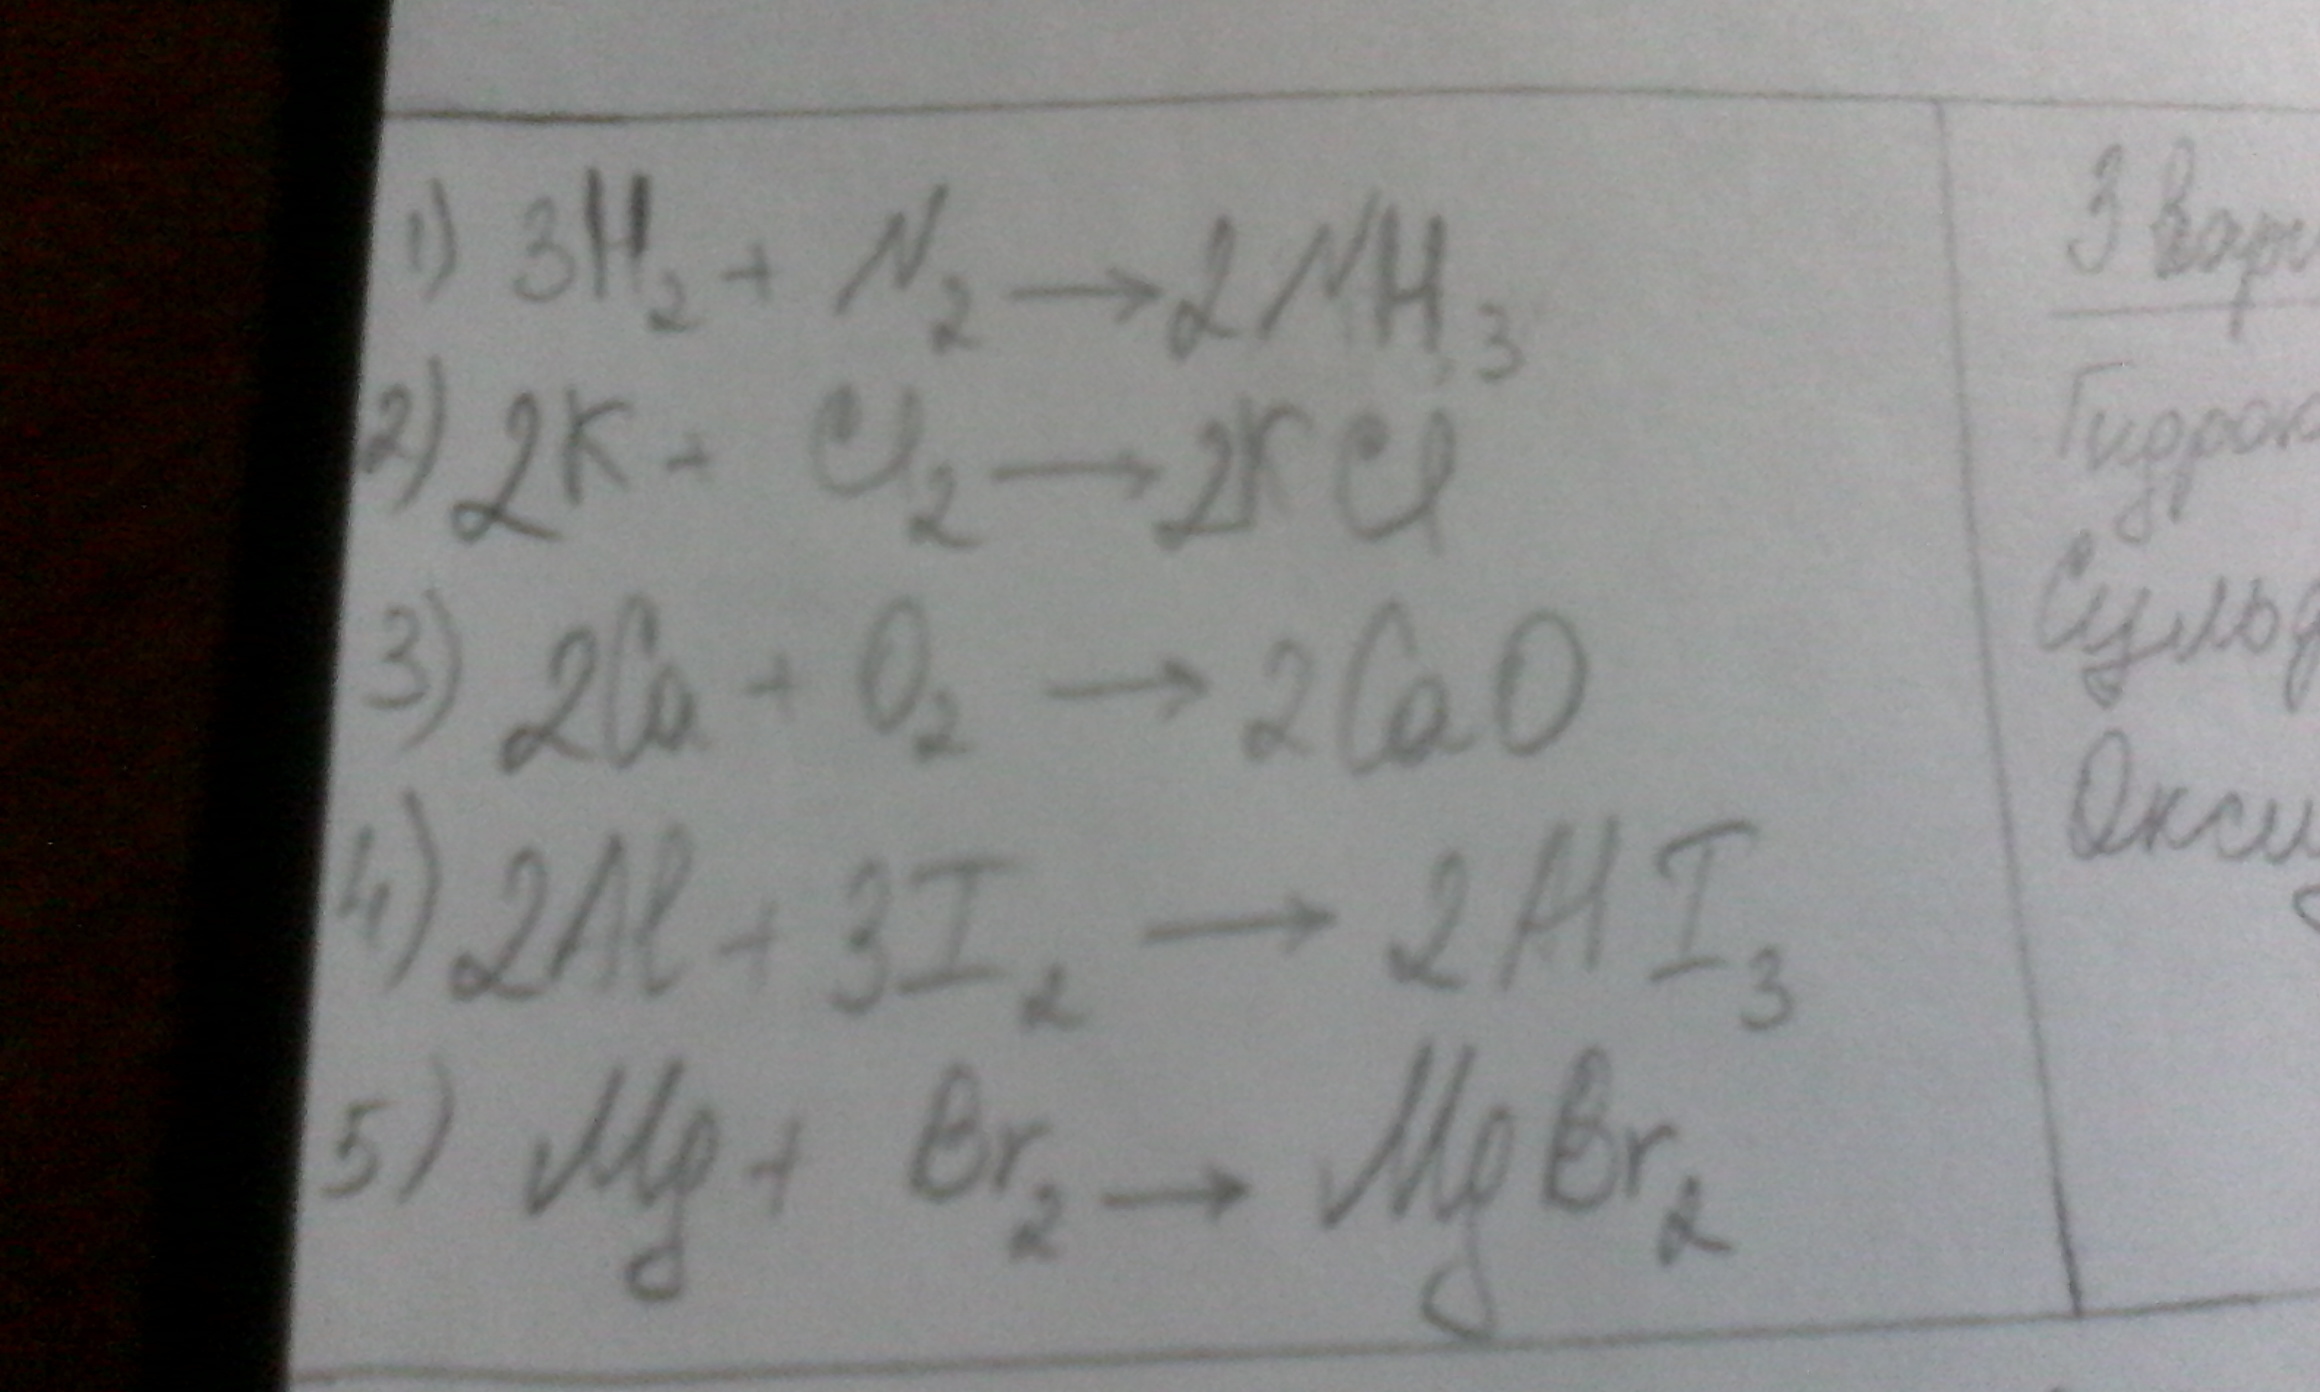 1) 3H₂ + N₂ → 2NH₃
2) 2K + Cl₂ → 2KCl
3) 2Ca + O₂ → 2CaO
4) 2Al + 3I₂ → 2AlI₃
5) Mg + Br₂ → MgBr₂
3 вари
Гидрок
Сульф
Окси